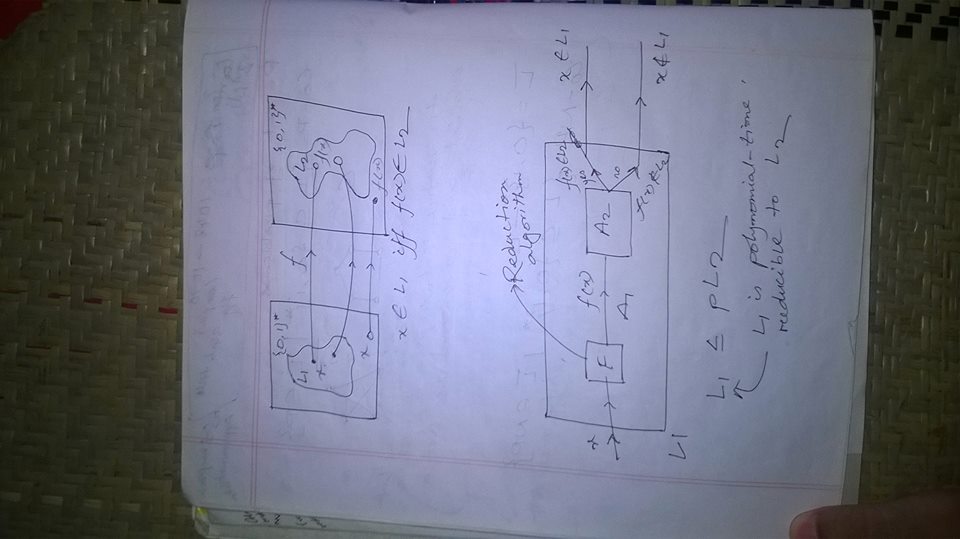 {0,1}*
L1
x
x
f
{0,1}*
L2
f(x)
f(x)
x ∈ L1 iff f(x) ∈ L2
Reduction
algorithm
x
F
f(x)
A1
A2
f(x)∈L2
yes
no
f(x)∉L2
x ∈ L1
x ∉ L1
L1
L1 ≤ pL2
L1 is polynomial-time'
reducible to L2